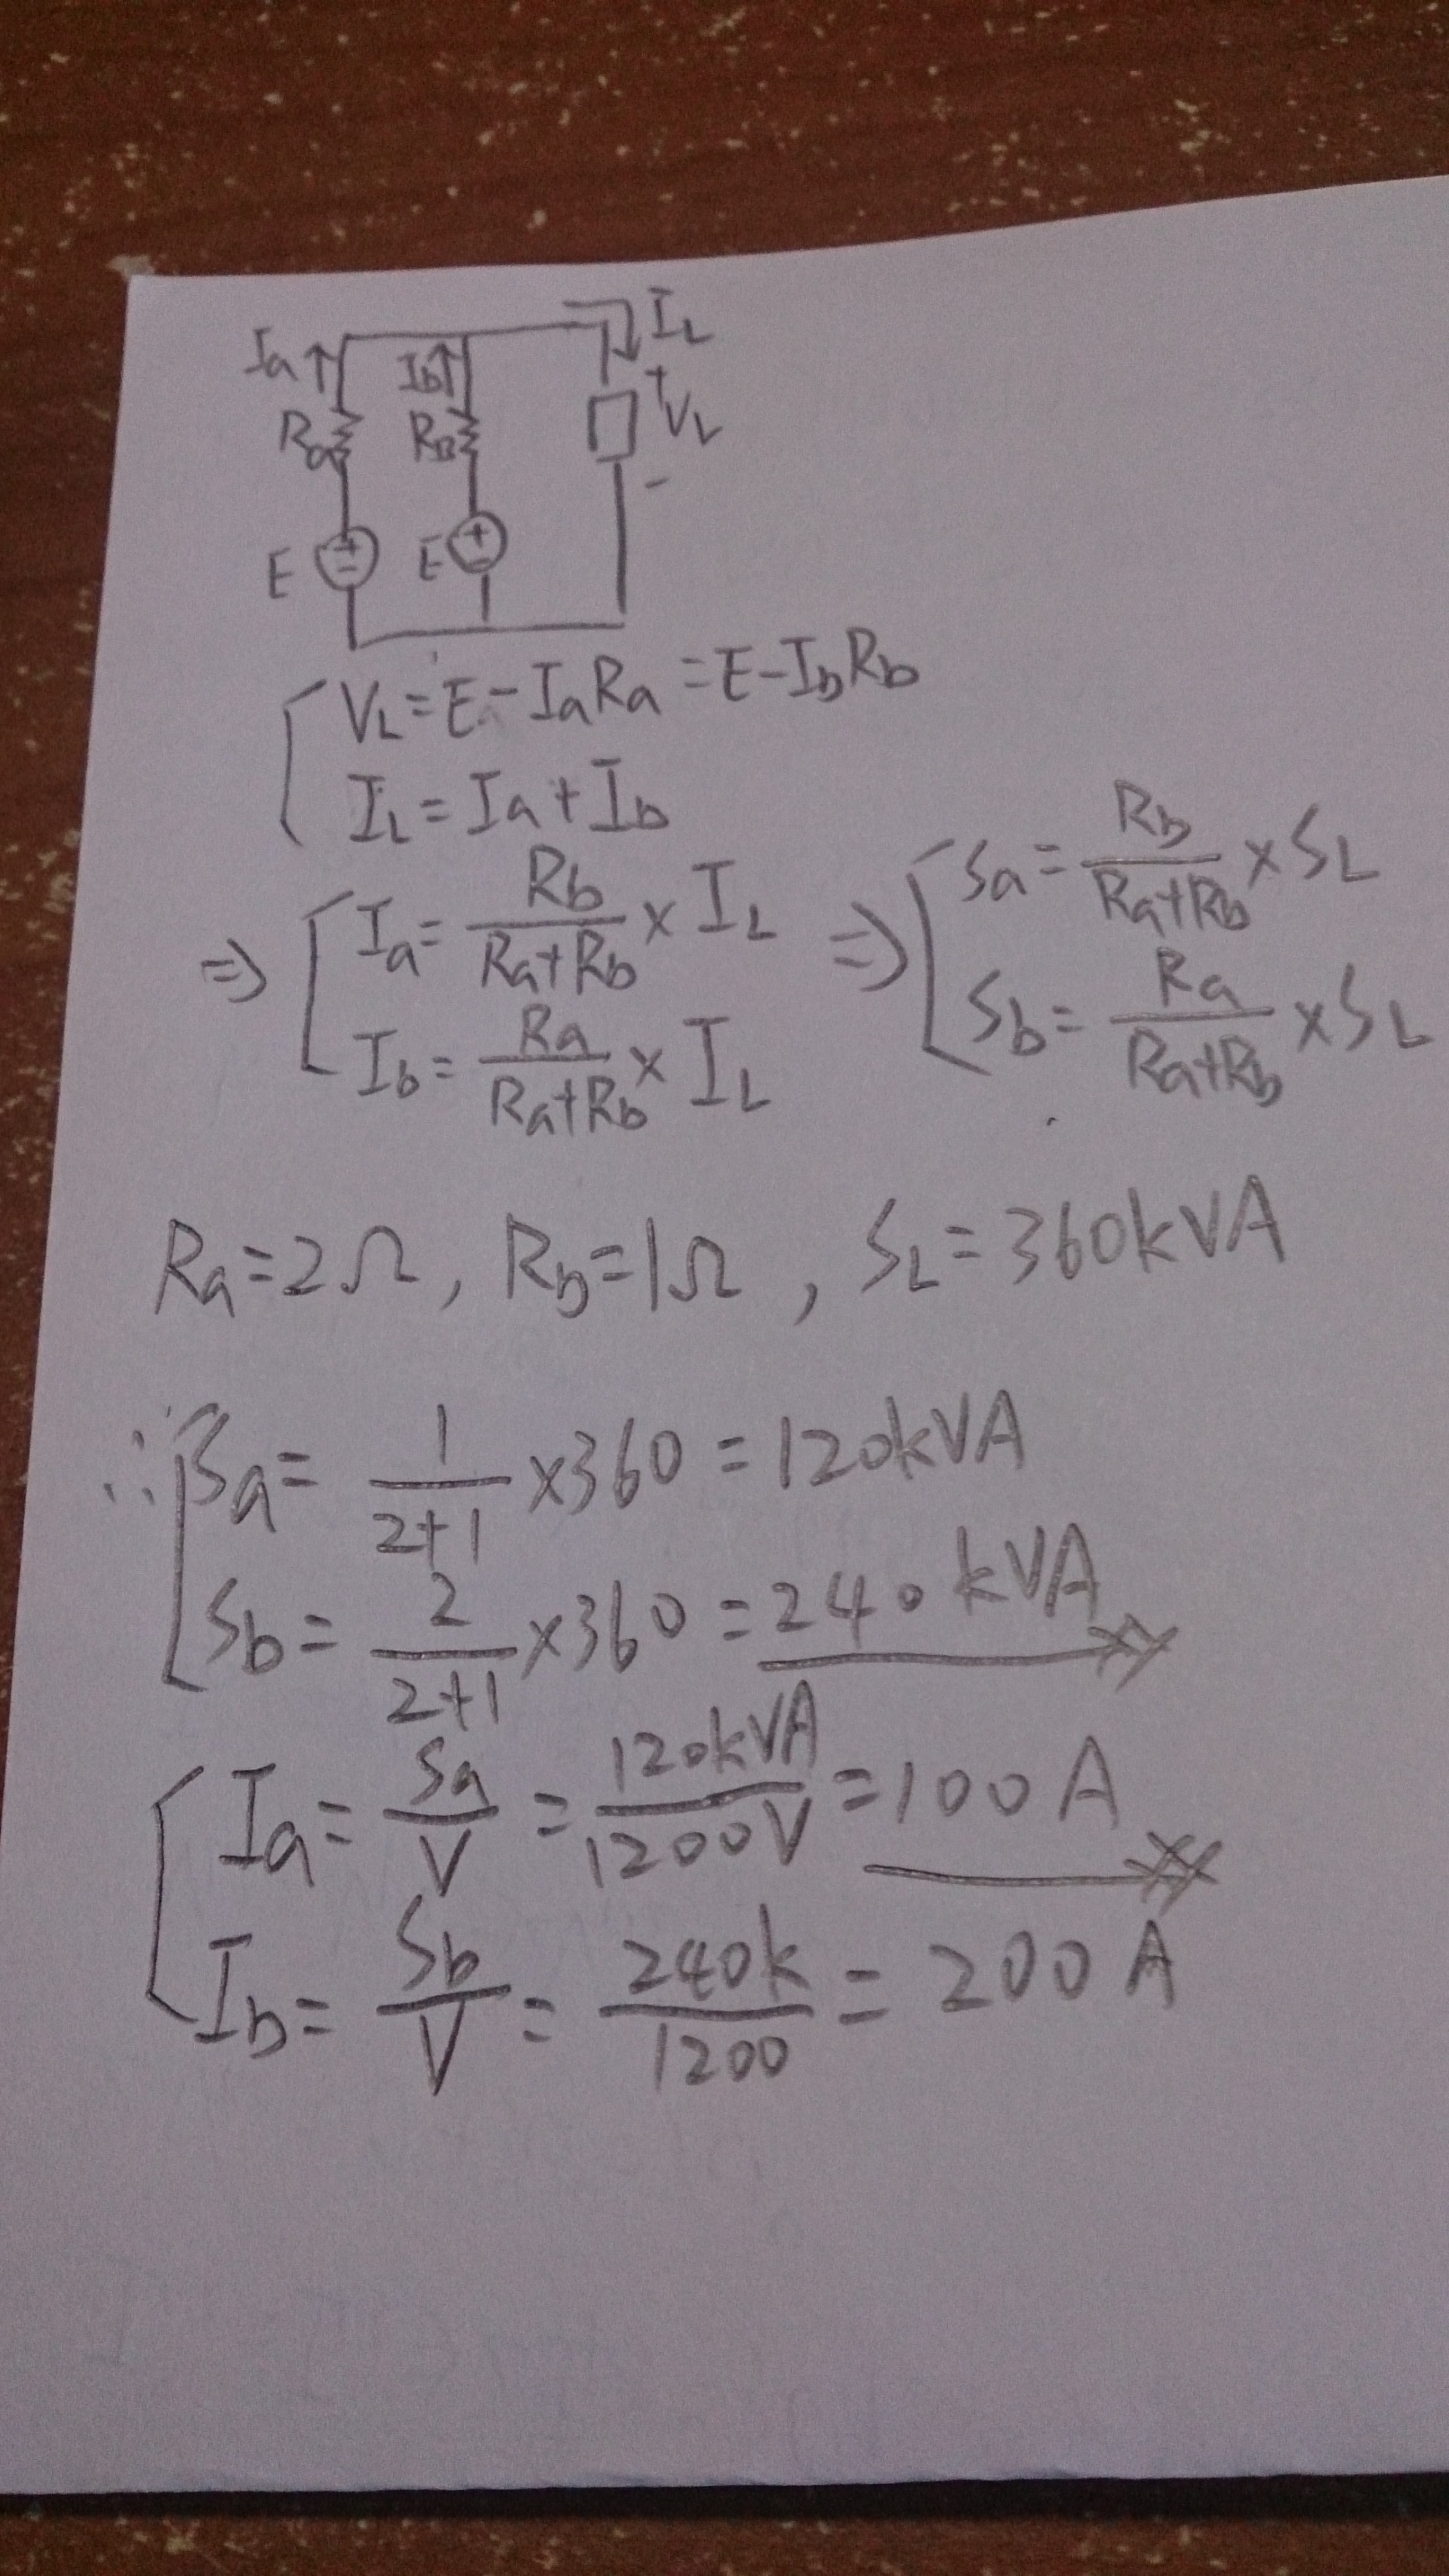 Ia Ib IL
Ra RB + VL -
E + - E + -
VL = E - IaRa = E - IbRb
IL = Ia + Ib
⇒ Ia = Rb/(Ra+Rb) × IL ⇒ Sa = Rb/(Ra+Rb) × SL
Ib = Ra/(Ra+Rb) × IL Sb = Ra/(Ra+Rb) × SL
Ra=2Ω, Rb=1Ω, SL=360kVA
∴ Sa = 1/(2+1) ×360 = 120kVA
Sb = 2/(2+1) ×360 = 240kVA
Ia = Sa/V = 120kVA/1200V = 100A
Ib = Sb/V = 240k/1200 = 200A